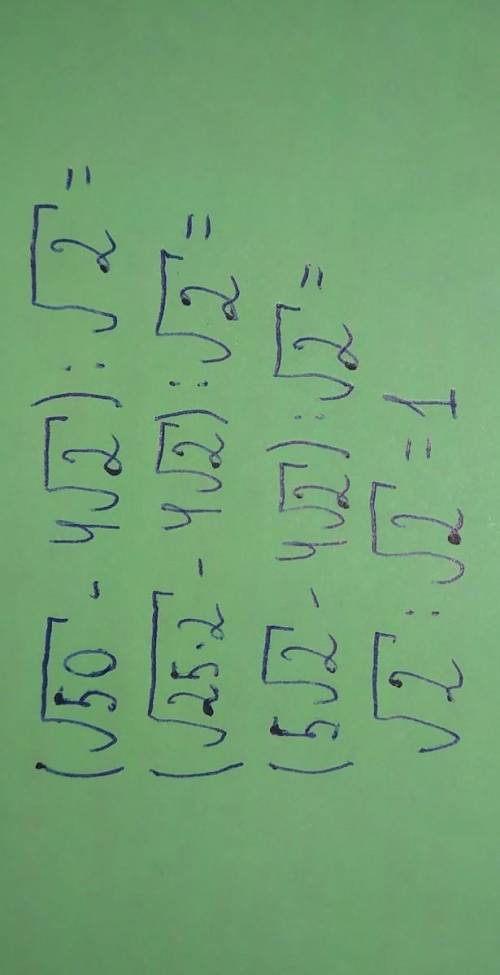 (√50 - 4√2) : √2 =
(√25·2 - 4√2) : √2 =
(5√2 - 4√2) : √2 =
√2 : √2 = 1